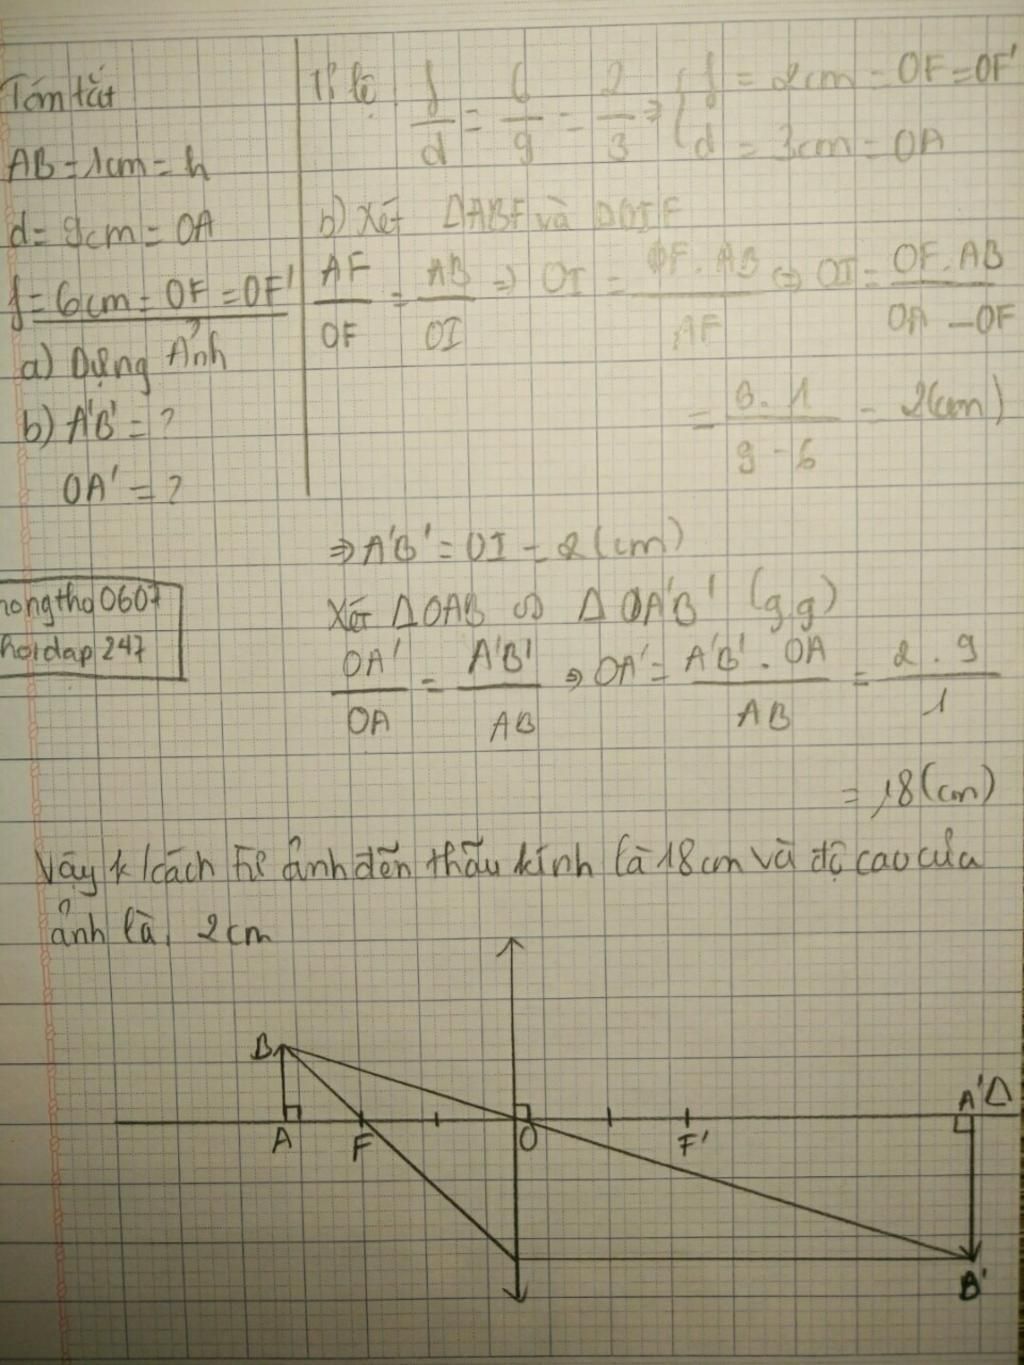 Tóm tắt
AB = 1cm = h
d = 9cm = OA
f = 6cm = OF = OF'
a) Dựng Ảnh
b) A'B' = ?
OA' = ?
hongthq0607
hoidap247
Tỉ lệ f/d = 6/9 = 2/3 => { f = 2cm = OF = OF'
d = 3cm = OA
b) Xét ΔABF và ΔOIF
AF/OF = AB/OI => OI = OF.AB/AF => OI = OF.AB/OA - OF
= 6.1/9-6 = 2(cm)
=> A'B' = OI = 2(cm)
Xét ΔOAB ∽ ΔOA'B' (g.g)
OA'/OA = A'B'/AB => OA' = A'B'.OA/AB = 2.9/1
= 18(cm)
Vậy k/cách từ ảnh đến thấu kính là 18cm và độ cao của
ảnh là 2cm
B
A F O F' A' Δ
B'